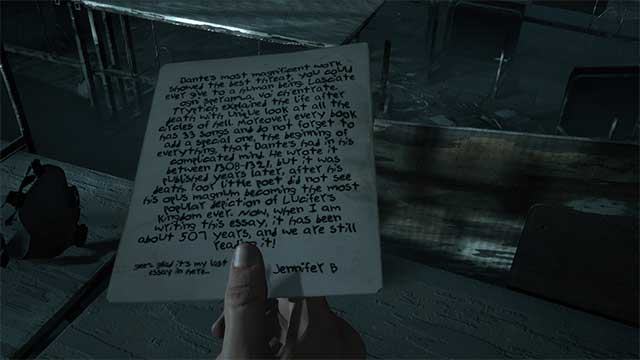 Dantes most magnificent work
showed the best threat, you could
ever give to a human being. Lasciate
ogni speranza, voi ch'entrate.
Tryptich explained the life after
death with unique look at all the
circles of hell. Moreover, every book
has 33 songs and do not forget to
add a special one, the beginning of
everything that Dantes had in his
complicated mind. He wrote it
between 1308-1321, but it was
published years later, after his
death. Poor little poet did not see
his opus magnum becoming the most
popular depiction of Lucifer's
Kingdom ever. Now, when I am
writing this essay, it has been
about 507 years, and we are still
reading it!
glad it's my last
essay in here...
Jennifer B